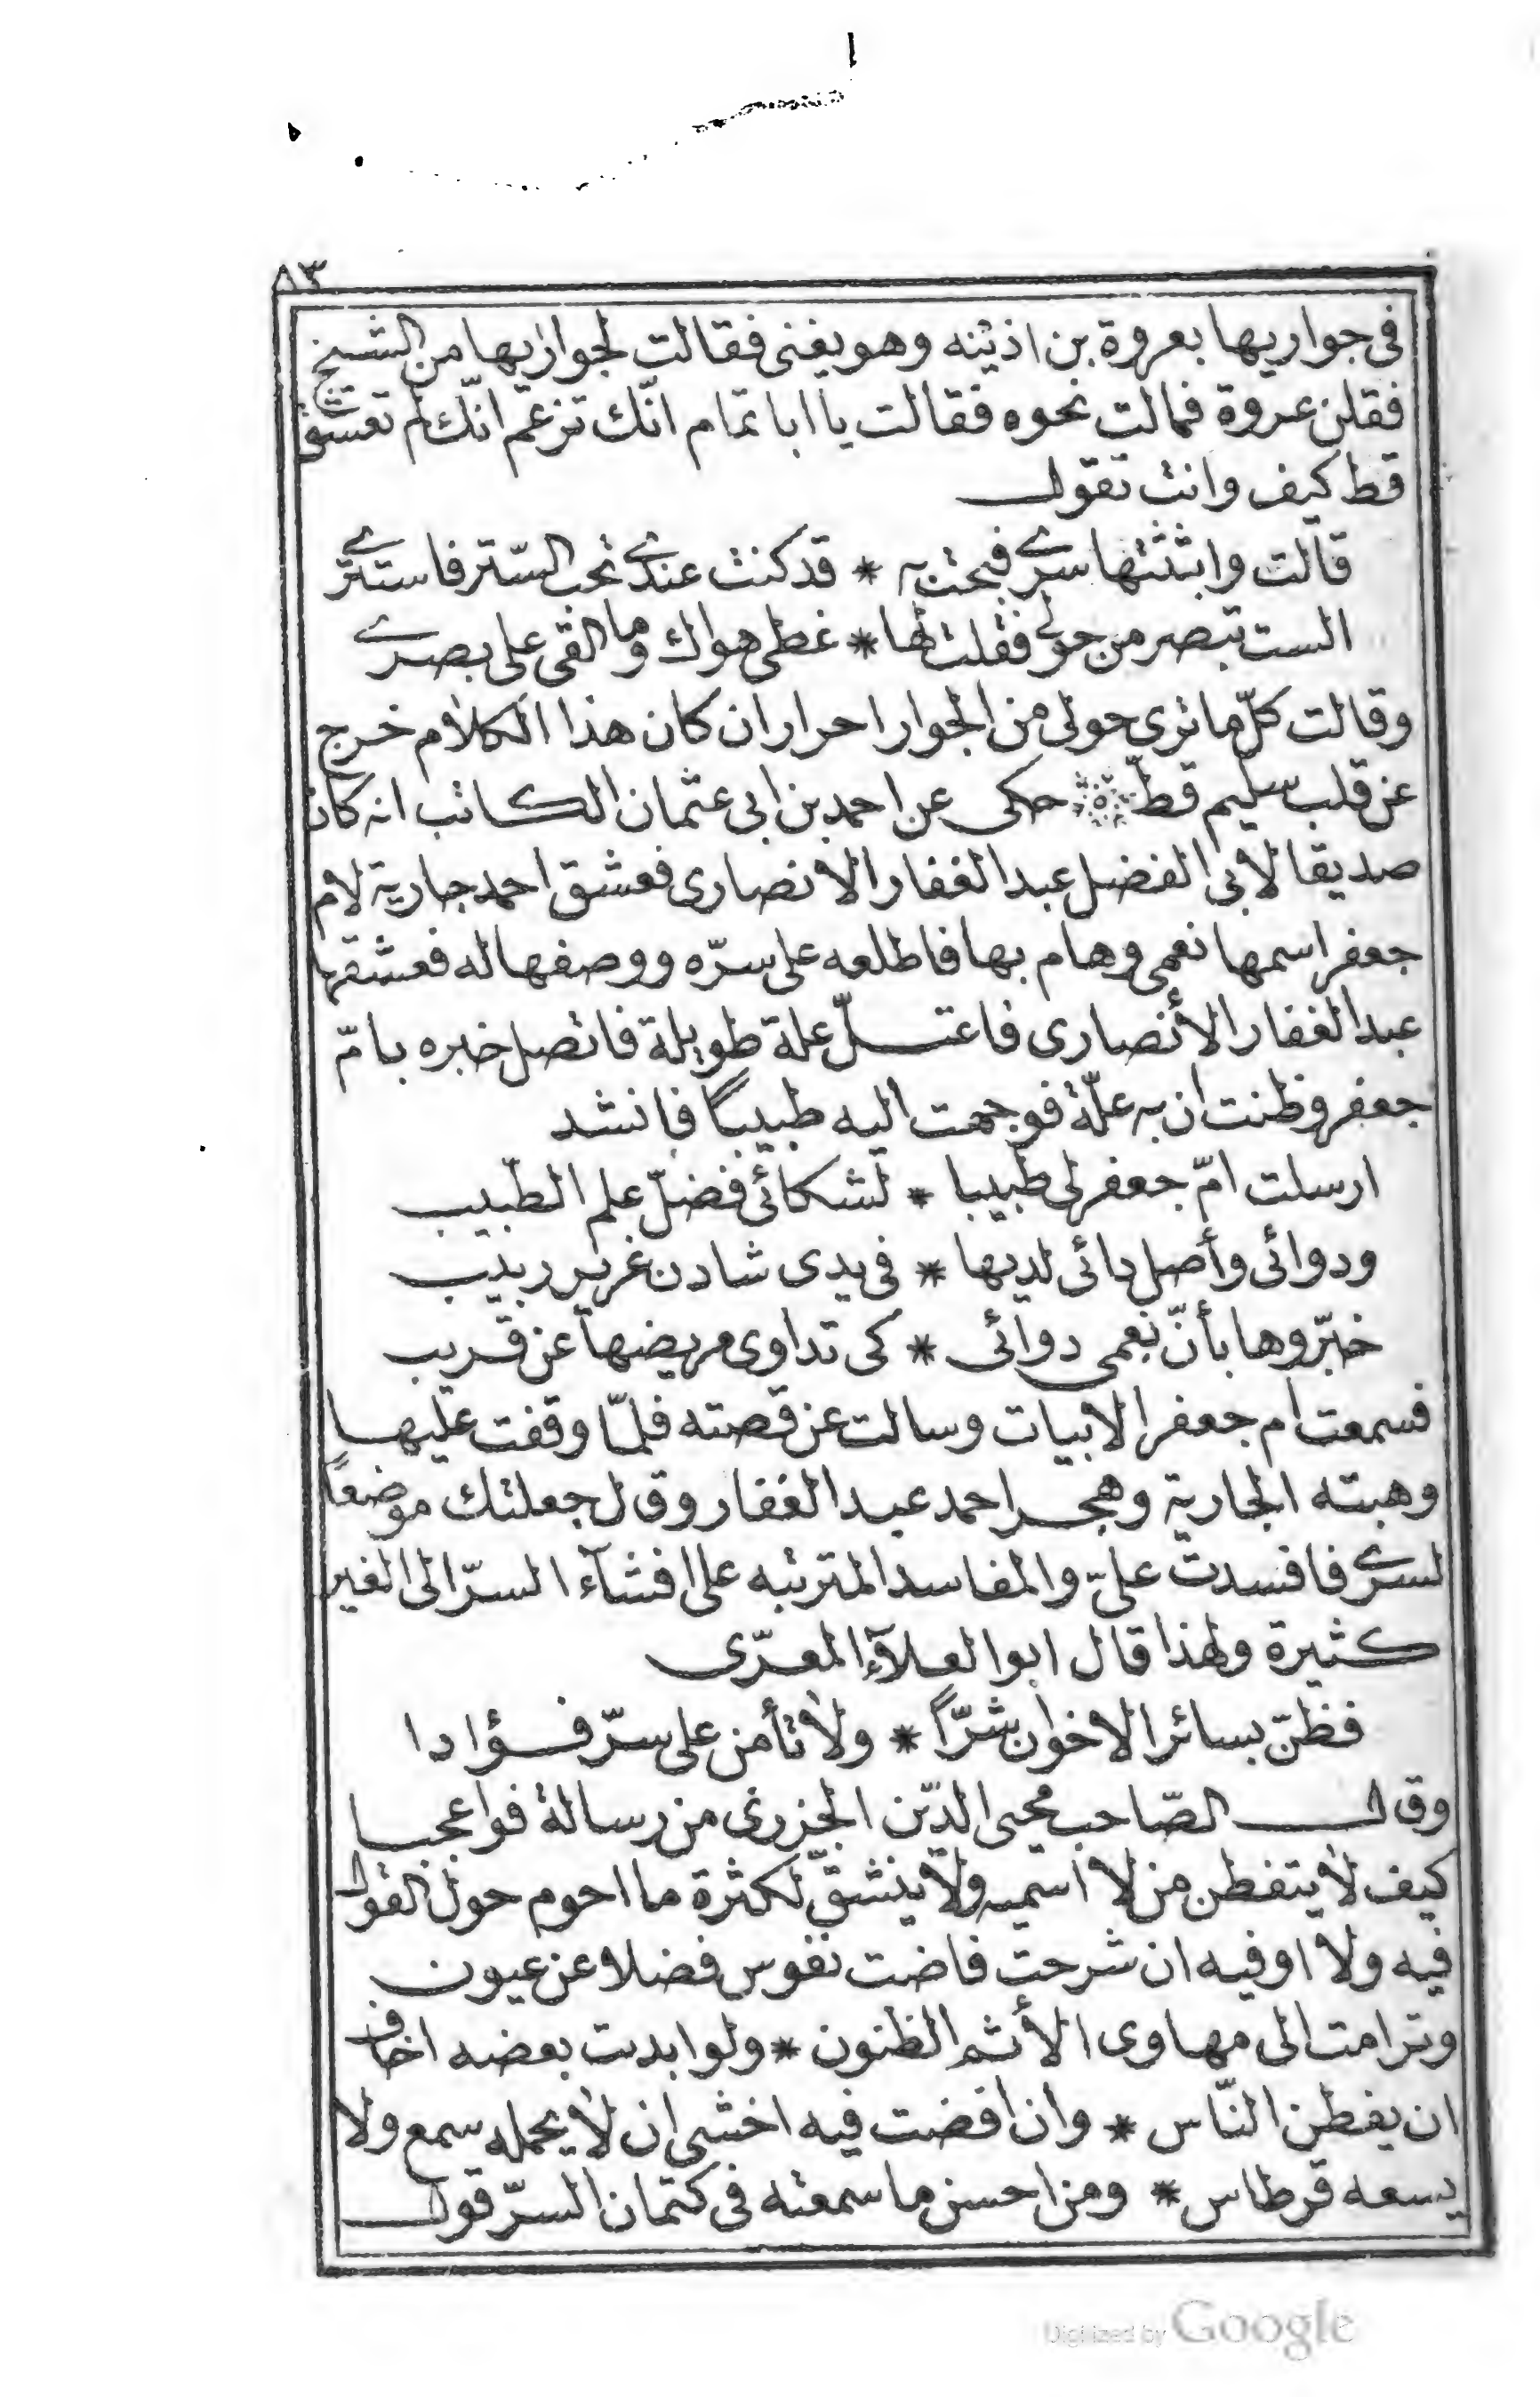 ٨٣
فى جواريها بعروة بن اذينه وهو يغنى فقالت لجواريها من الشيخ
فقلن عروة فمالت نحوه فقالت يا ابا تمام انّك تزعم انّك لم تعشق
قط كيف وانت تقول
قالت وابثثتها سرّى فبحت به * قد كنت عندى تحب السّتر فاستتر
الست تبصر من حولى فقلت لها * غطى هواك وما القى على بصرى
وقالت كلّ ما ترى حولى من الجوار احرار ان كان هذا الكلام خرج
عن قلب سليم قطّ حكى عن احمد بن ابى عثمان الكاتب انه كان
صديقا لابى الفضل عبد الغفار الانصارى فعشق احمد جارية لام
جعفر اسمها نعمى وهام بها فاطلعه على سرّه ووصفها له فعشقها
عبد الغفار الأنصارى فاعتلّ علة طويلة فاتصل خبره بامّ
جعفر وظنت ان به علّة فوجهت اليه طبيباً فانشد
ارسلت امّ جعفر لى طبيبا * لشكائى فضلّ علم الطّبيب
ودوائى وأصل دائى لديها * فى يدى شادن غرير ربيب
خبّروها بأنّ نعمى دوائى * كى تداوى مريضها عن قريب
فسمعت ام جعفر الابيات وسالت عن قصته فلمّا وقفت عليها
وهبته الجارية وهجر احمد عبد الغفار وقال جعلتك موضعاً
لسرّى فافسدت علىّ والمفاسد المترتبه على افشآء السرّ الى الغير
كثيرة ولهذا قال ابو العلآء المعرّى
فظنّ بسائر الاخوان شرّاً * ولا تأمن على سرّ فؤادا
وقال الصّاحب محيى الدّين الجزرى من رسالة فوا عجبا
كيف لا يتفطن من لا اسميه ولا ينشقّ لكثرة ما احوم حول القول
فيه ولا اوفيه ان شرحت فاضت نفوس فضلا عن عيون
وترامت الى مهاوى الأثم الظنون * ولو ابديت بعضه اخاف
ان يفطن النّاس * وان افضت فيه اخشى ان لا يحمله سمع ولا
يسعه قرطاس * ومن احسن ما سمعته فى كتمان السرّ قول
Digitized by Google